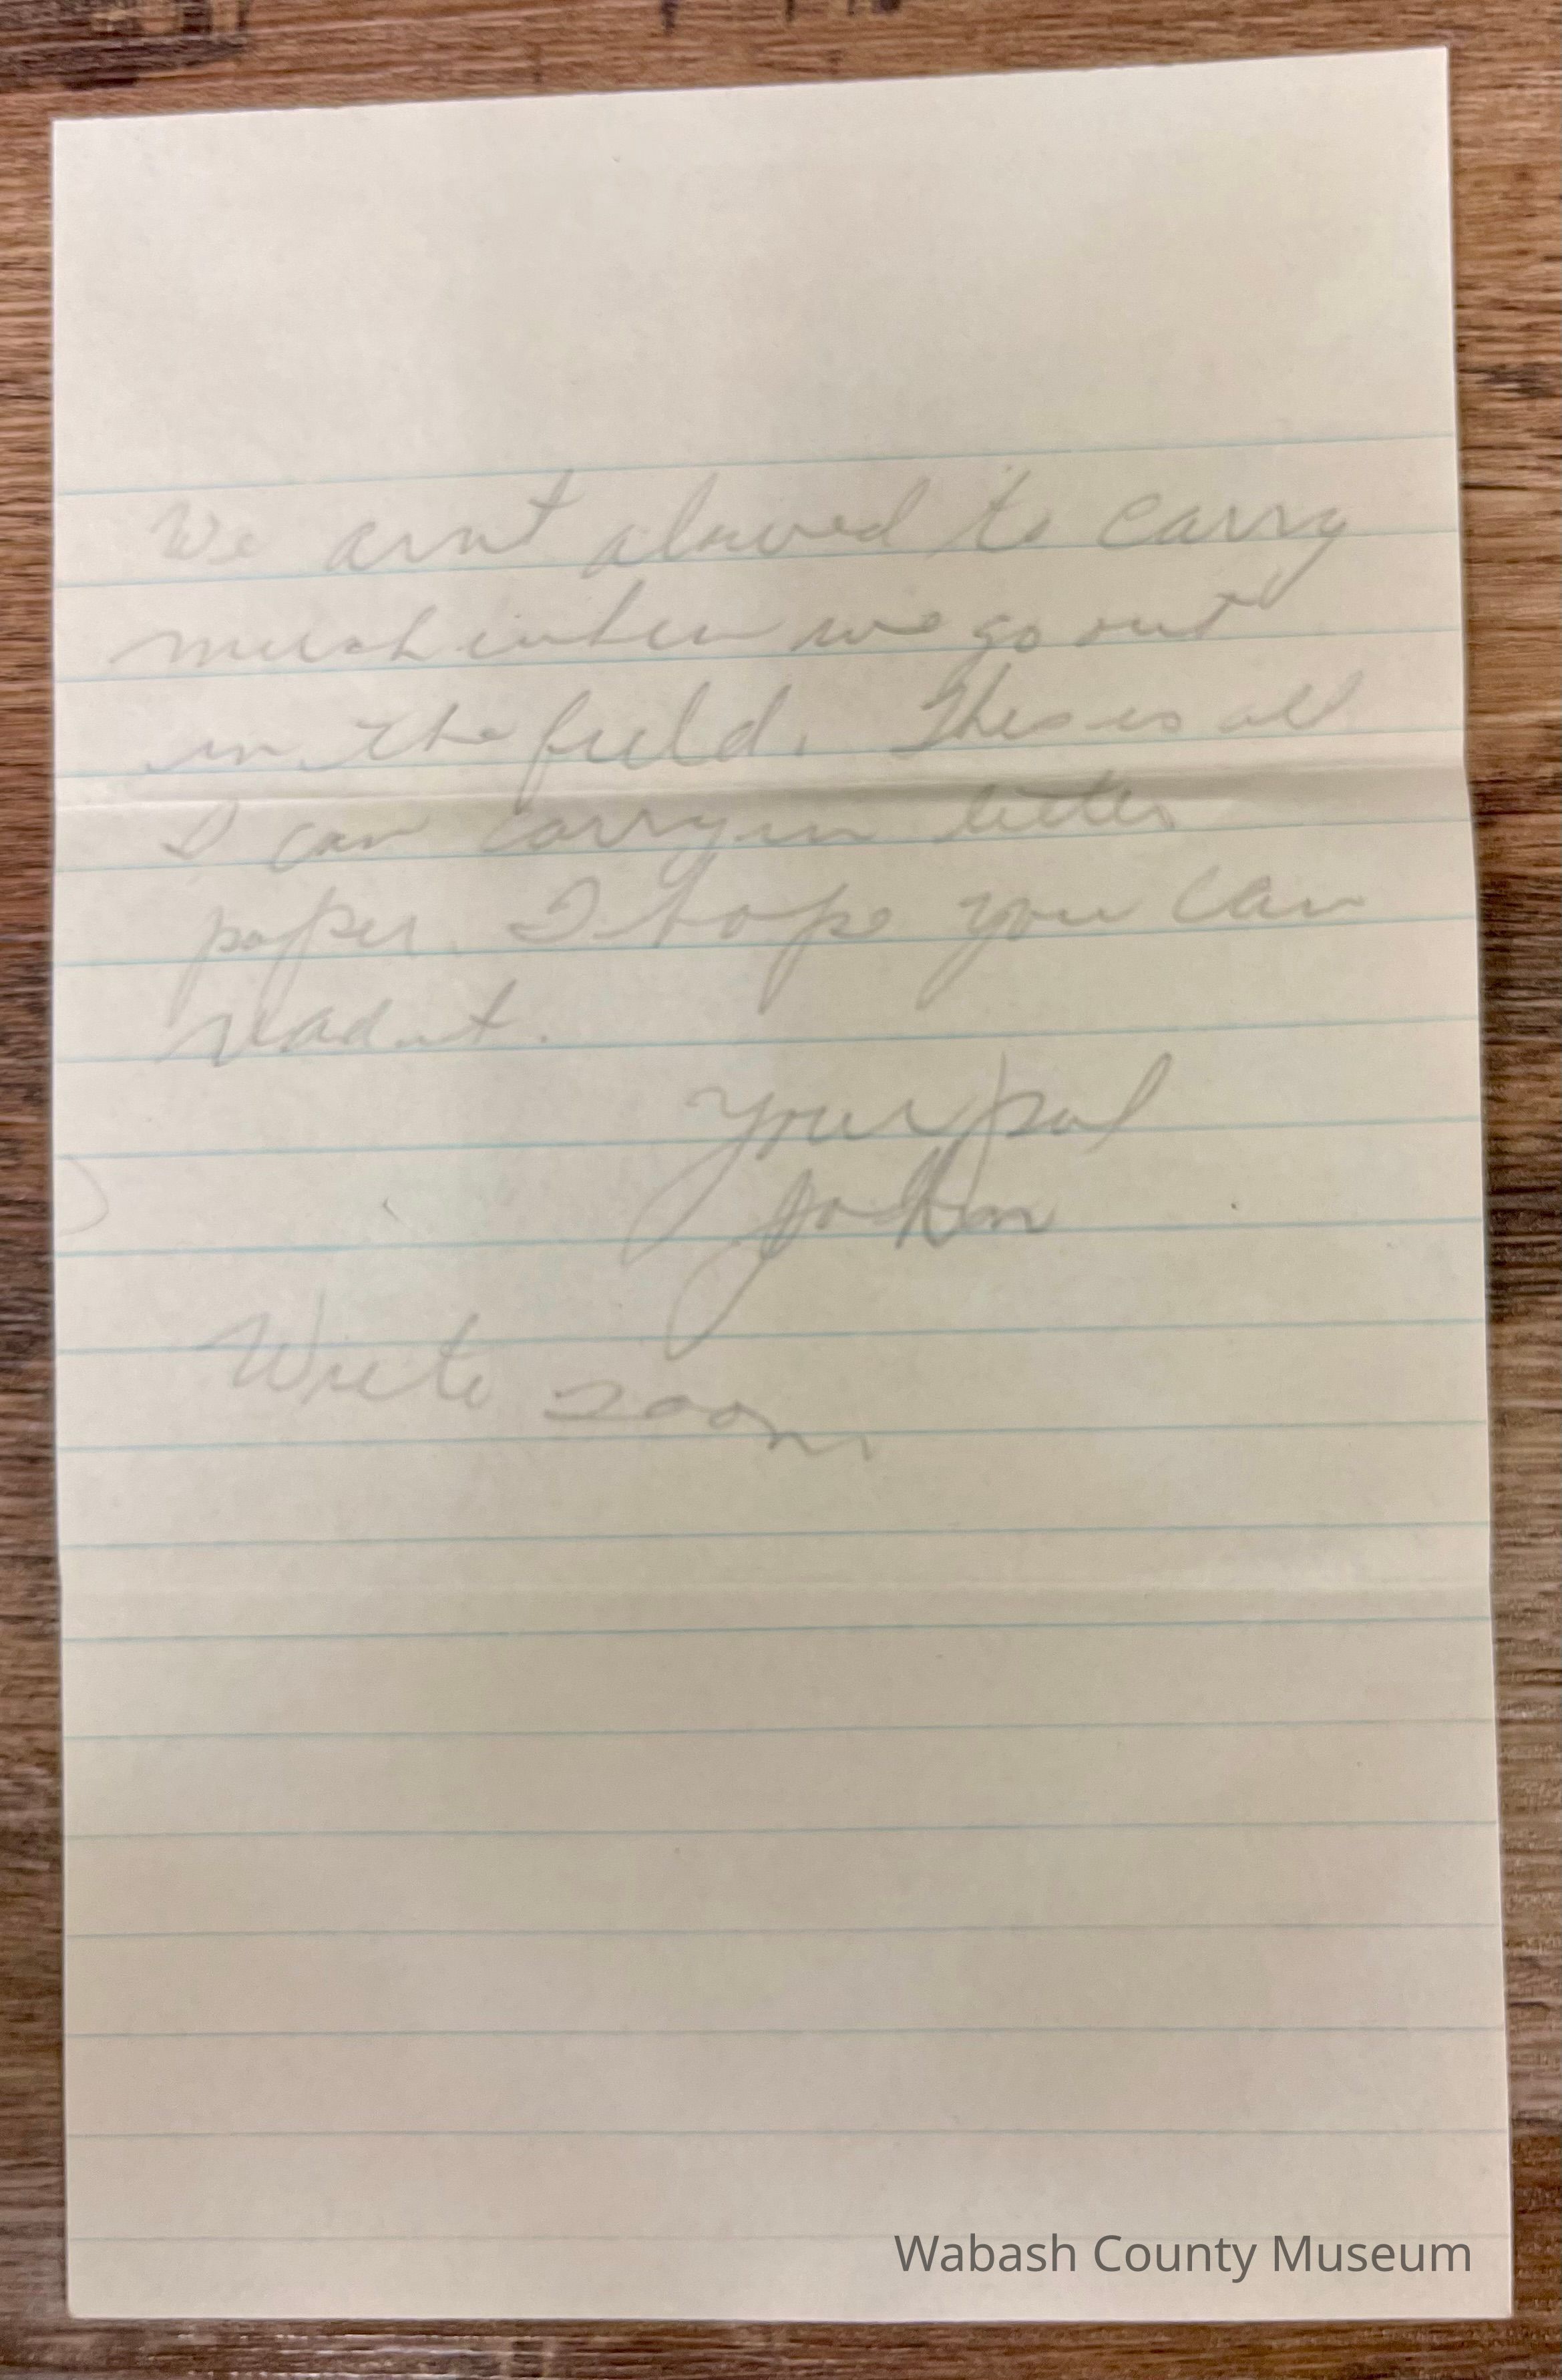 We arnt alowed to carry
much when we go out
in the field. This is all
I can carry in letter
paper. I hope you can
read it.
Your pal
John
Write soon.
Wabash County Museum